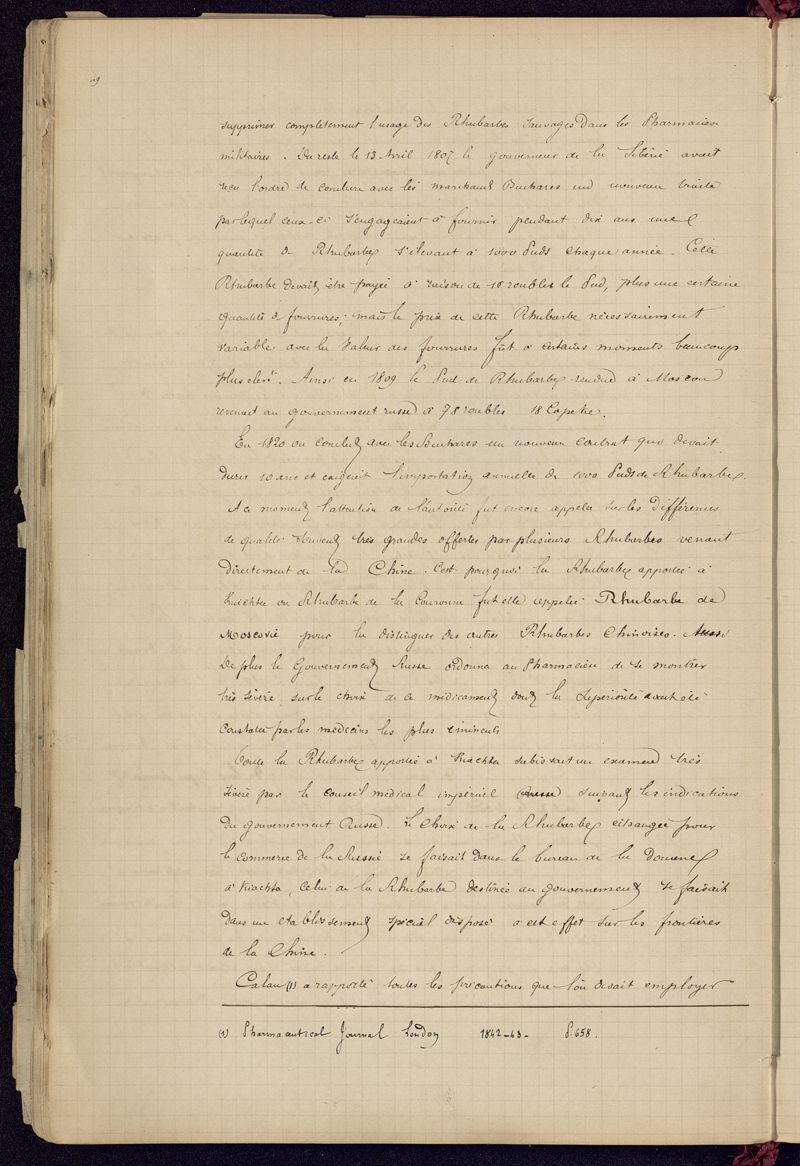 supprimer complètement l'usage des Rhubarbes sauvages dans les Pharmacies
militaires. Du reste le 13 Avril 1807 le gouverneur de la Sibérie avait
reçu l'ordre de conclure avec les marchands Buchares un nouveau traité
par lequel ceux-ci s'engageaient à fournir pendant dix ans une
quantité de Rhubarbe s'élevant à 1000 Puds chaque année. Cette
Rhubarbe devait être payée à raison de 16 roubles le Pud, plus une certaine
quantité de fourrures; mais le prix de cette Rhubarbe nécessairement
variable avec la valeur des fourrures fût à certains moments beaucoup
plus élevé. Ainsi en 1809 le Pud de Rhubarbe rendu à Moscou
revenait au gouvernement russe à 78 roubles 18 Copeke.
En 1820 on conclut avec les Buchares un nouveau contrat qui devait
durer 10 ans et exigeait l'importation annuelle de 1000 Puds de Rhubarbe.
A ce moment l'attention de l'autorité fut encore appelée sur les différences
de qualité souvent très grandes offertes par plusieurs Rhubarbes venant
directement de la Chine. C'est pourquoi la Rhubarbe apportée à
Kiachta ou Rhubarbe de la Couronne fut elle appelée Rhubarbe de
Moscovie pour la distinguer des autres Rhubarbes Chinoises.
De plus le Gouvernement Russe ordonna au Pharmacien de se montrer
très sévère sur le choix de ce médicament dont la supériorité avait été
constatée par les médecins les plus éminents
Toute la Rhubarbe apportée à Kiachta subissait un examen très
sévère par le conseil médical impérial suivant les indications
du gouvernement Russe. Le choix de la Rhubarbe échangée pour
le commerce de la Russie se faisait dans le bureau de la Douane
à Kiachta, celui de la Rhubarbe destinée au gouvernement se faisait
dans un établissement spécial disposé à cet effet sur les frontières
de la Chine.
Calau (1) a rapporté toutes les précautions que l'on devait employer
(1) Pharmaceutical Journal London 1842-43- P. 658.